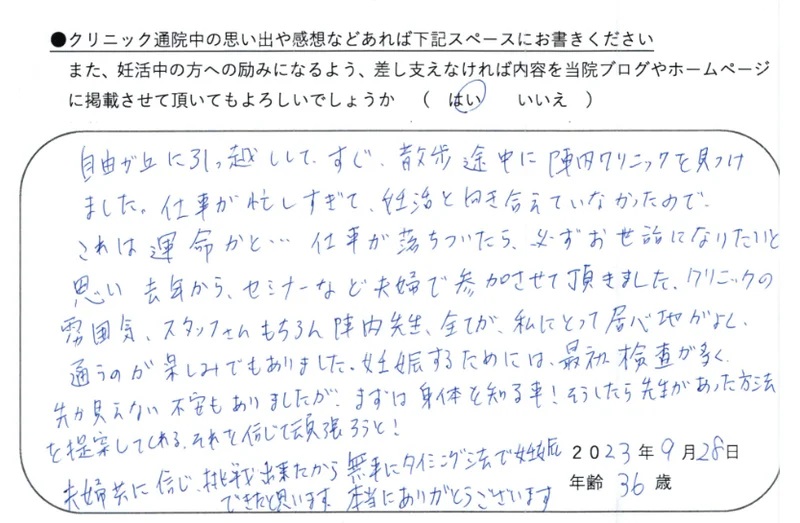 ●クリニック通院中の思い出や感想などあれば下記スペースにお書きください
また、妊活中の方への励みになるよう、差し支えなければ内容を当院ブログやホームページ
に掲載させて頂いてもよろしいでしょうか （ はい いいえ ）
自由が丘に引っ越しして、すぐ、散歩途中に陣内クリニックを見つけ
ました。仕事が忙しすぎて、妊活と向き合えていなかったので、
これは運命かと… 仕事が落ちついたら、必ずお世話になりたいと
思い 去年から、セミナーなど夫婦で参加させて頂きました、クリニックの
雰囲気、スタッフさんもちろん陣内先生、全てが、私にとって居心地がよく、
通うのが楽しみでもありました、妊娠するためには、最初検査が多く、
先が見えない不安もありましたが、まずは身体を知る事!そうしたら先生があった方法
を提案してくれる、それを信じて頑張ろうと!
夫婦共に信じ、挑戦出来たから 無事にタイミング法で妊娠
できたと思います 本当にありがとうございます
2023年9月28日
年齢 36歳